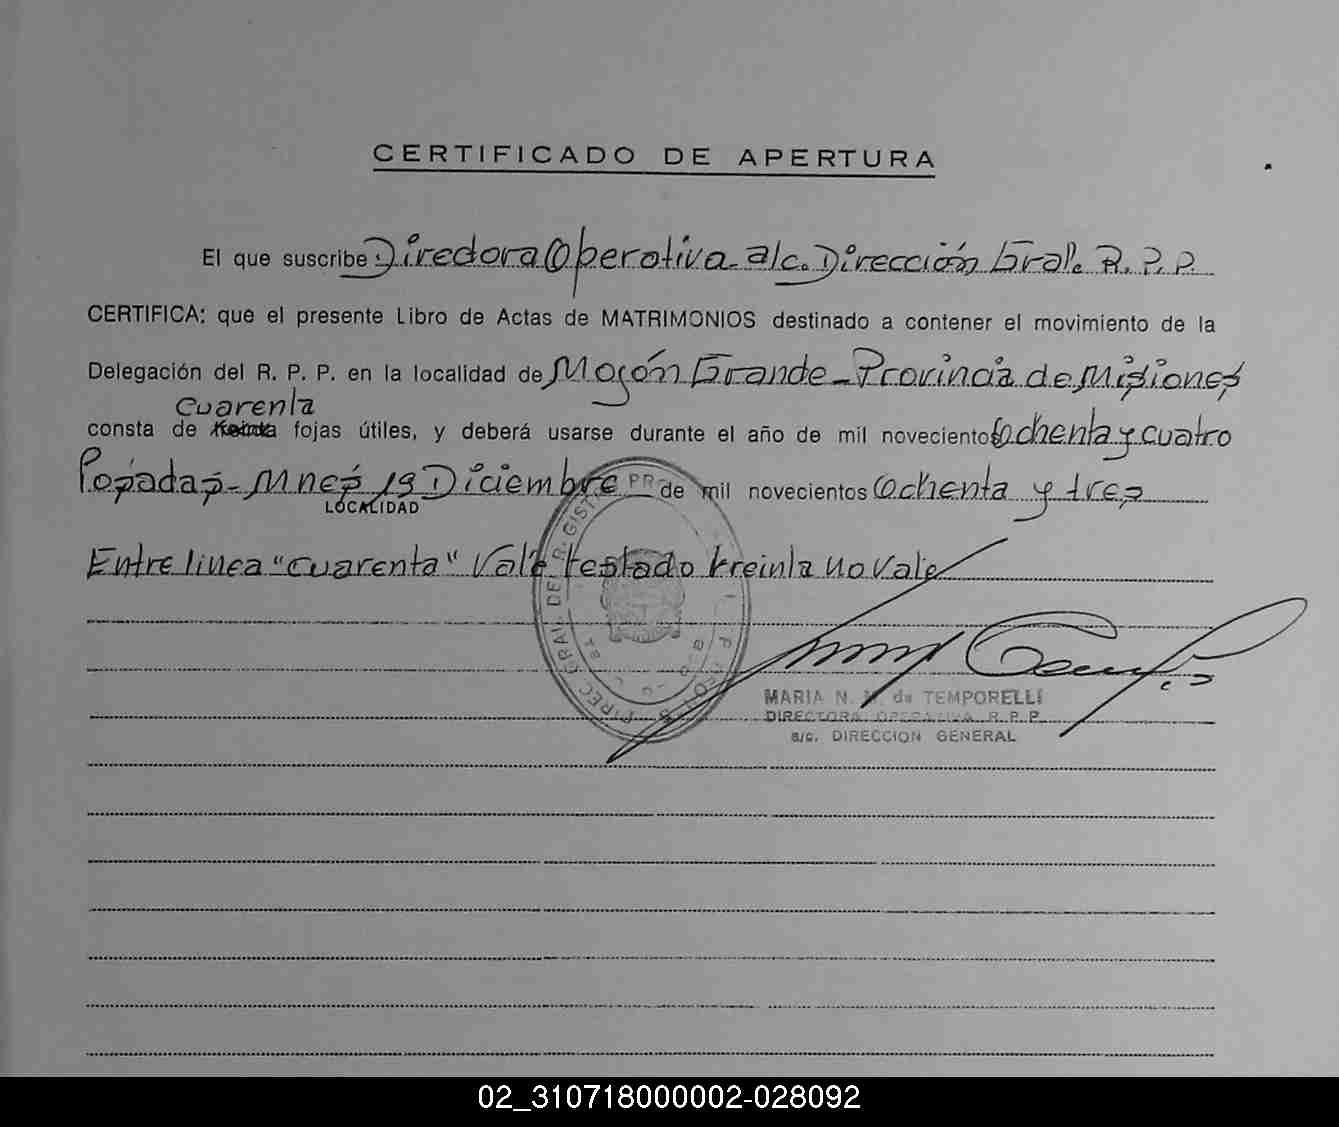 CERTIFICADO DE APERTURA
El que suscribe Directora Operativa a/c. Dirección Gral. R. P. P.
CERTIFICA: que el presente Libro de Actas de MATRIMONIOS destinado a contener el movimiento de la
Delegación del R. P. P. en la localidad de Mojón Grande - Provincia de Misiones
Cuarenta
consta de treinta fojas útiles, y deberá usarse durante el año de mil novecientos ochenta y cuatro
Posadas - Mnes 19 Diciembre de mil novecientos ochenta y tres
LOCALIDAD
Entre linea "cuarenta" Vale testado treinta no vale
MARIA N. de TEMPORELLI
DIRECTORA OPERATIVA R. P. P.
a/c. DIRECCION GENERAL
02_310718000002-028092